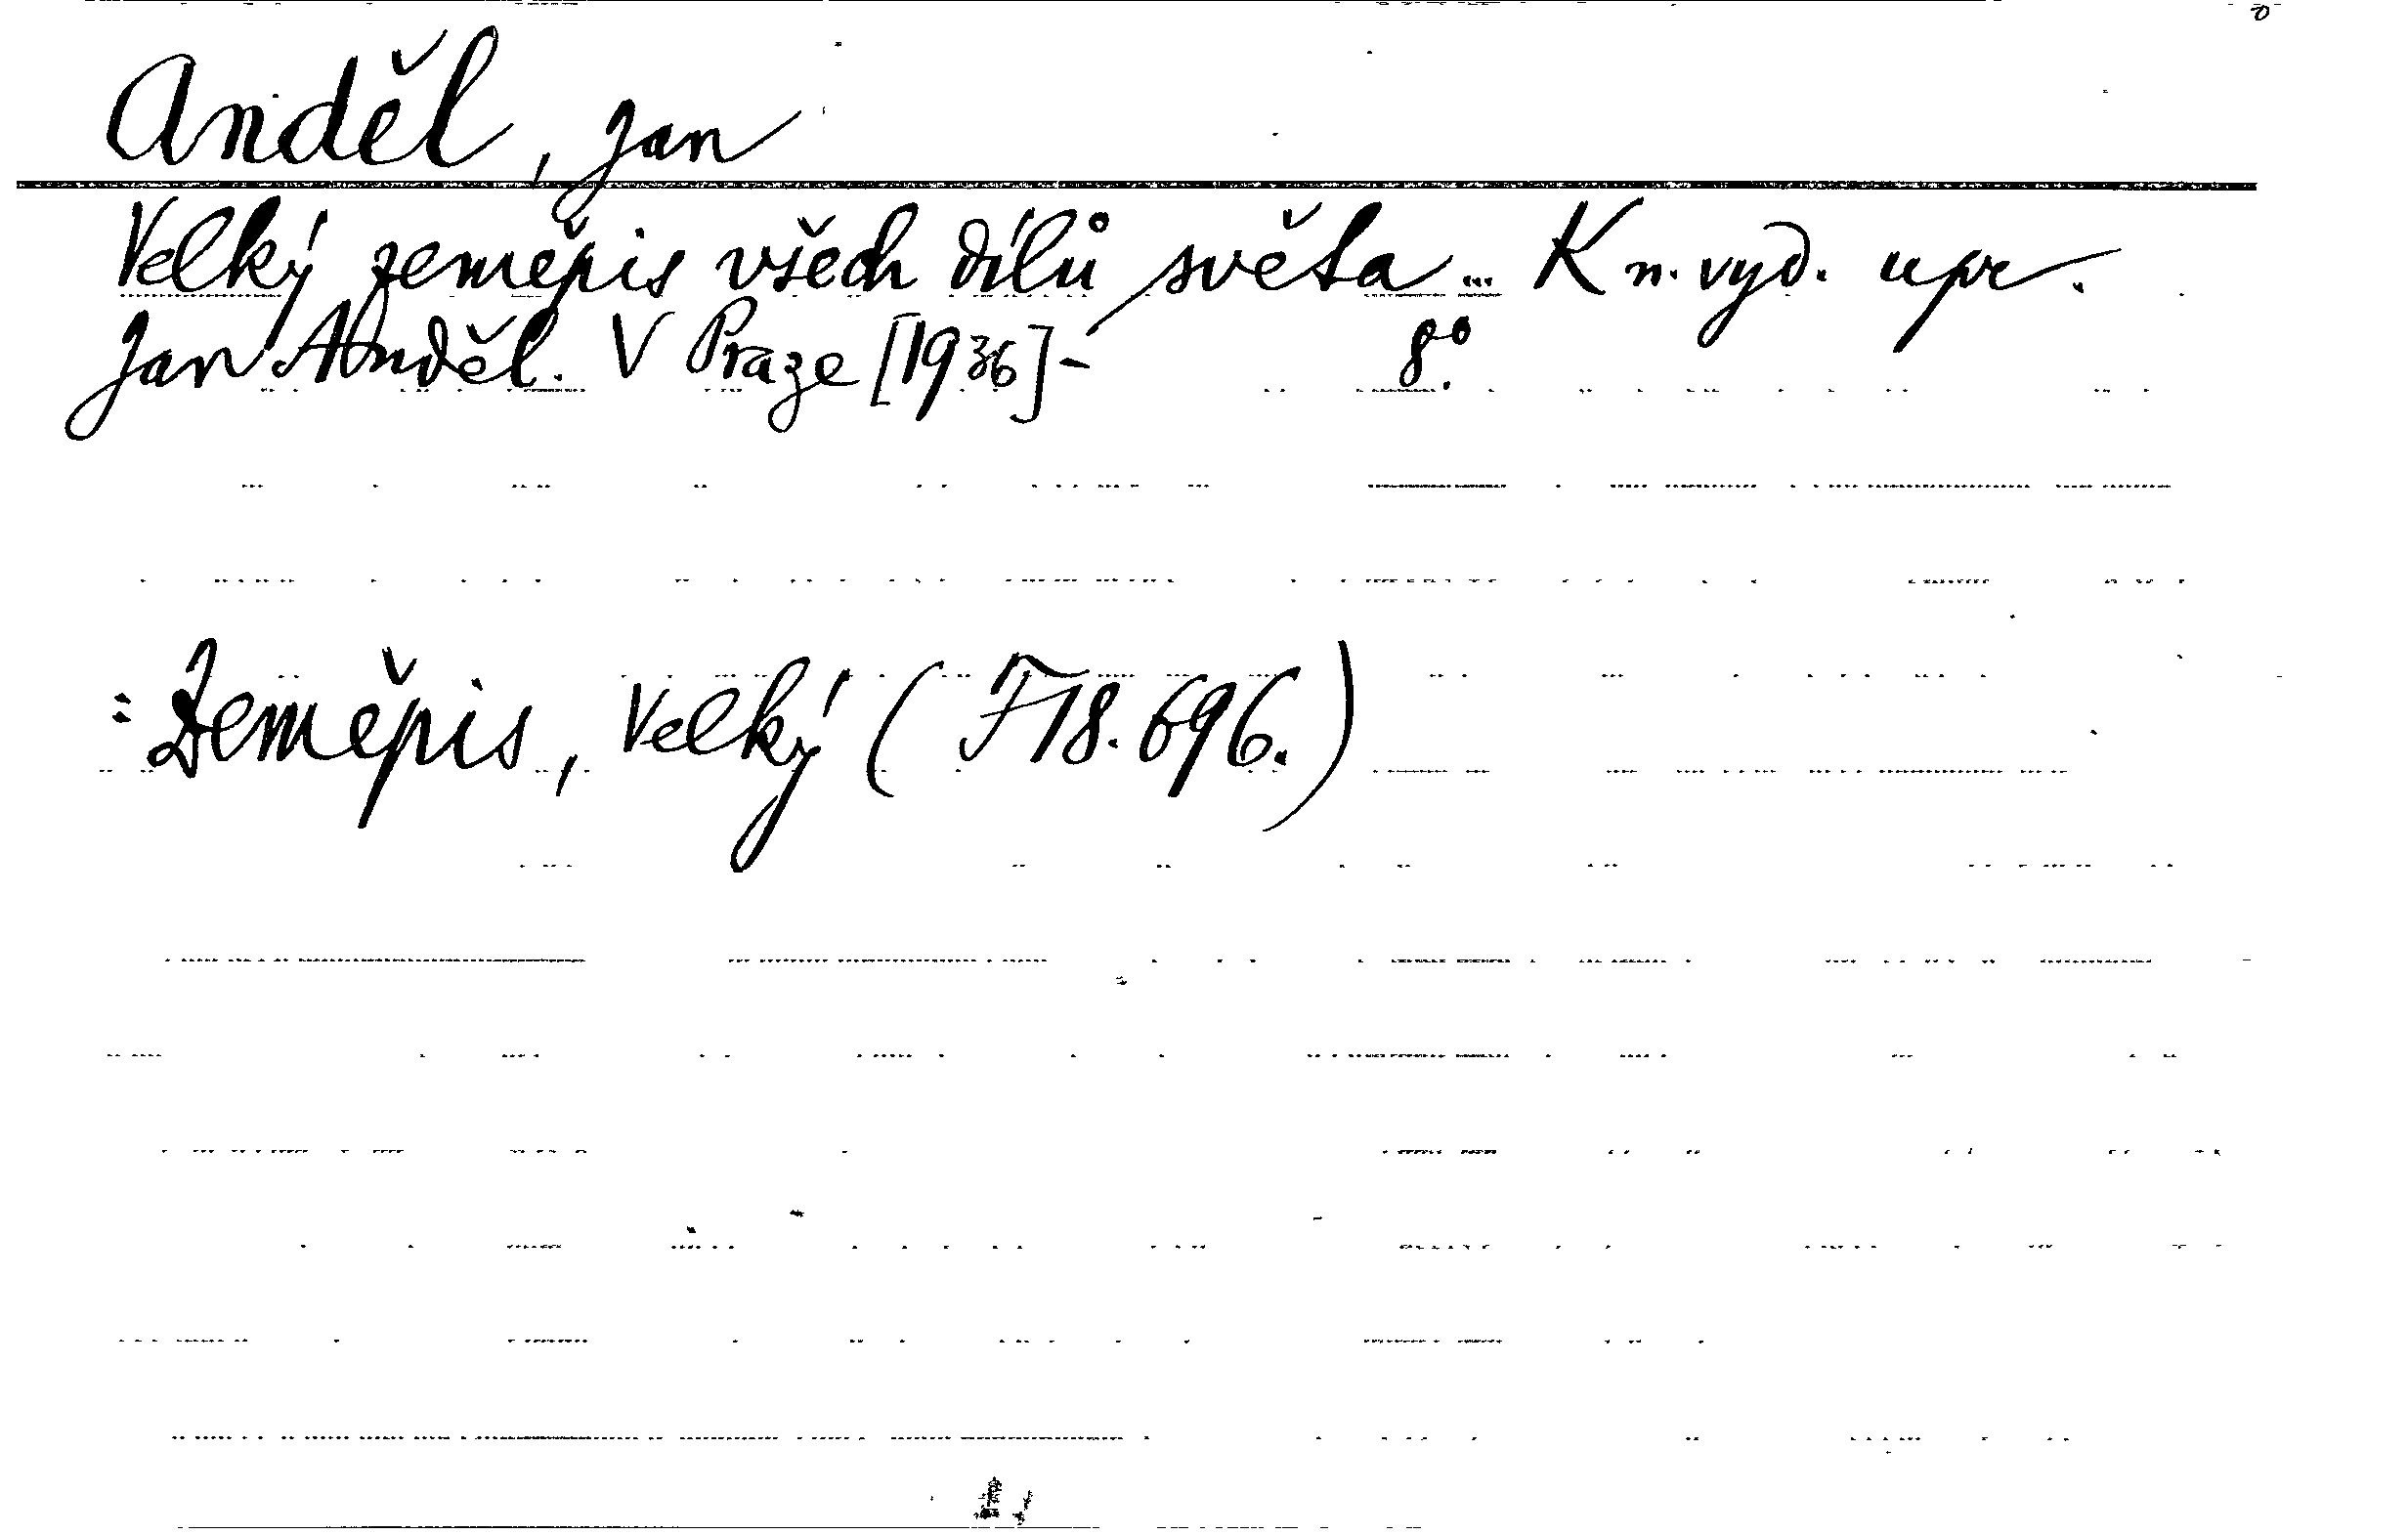 Anděl, Jan
Velký zeměpis všech dílů světa ... K n. vyd. upr.
Jan Anděl. V Praze [1936]- 8º.
= Zeměpis, Velký ( F 18.696.)